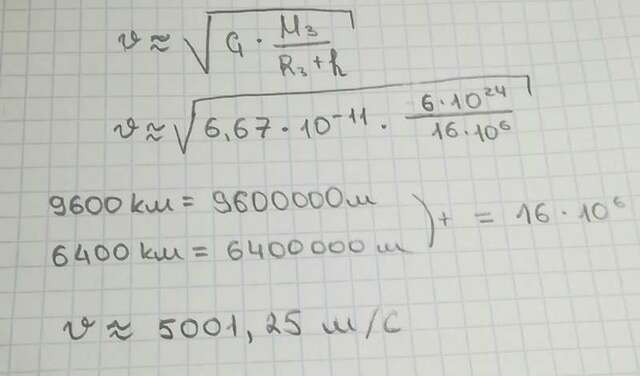 v ≈ √(G · M₃/(R₃+h))
v ≈ √(6,67 · 10⁻¹¹ · (6·10²⁴)/(16·10⁶))
9600 км = 9600000м
6400 км = 6400000 м ) + = 16 · 10⁶
v ≈ 5001,25 м/с